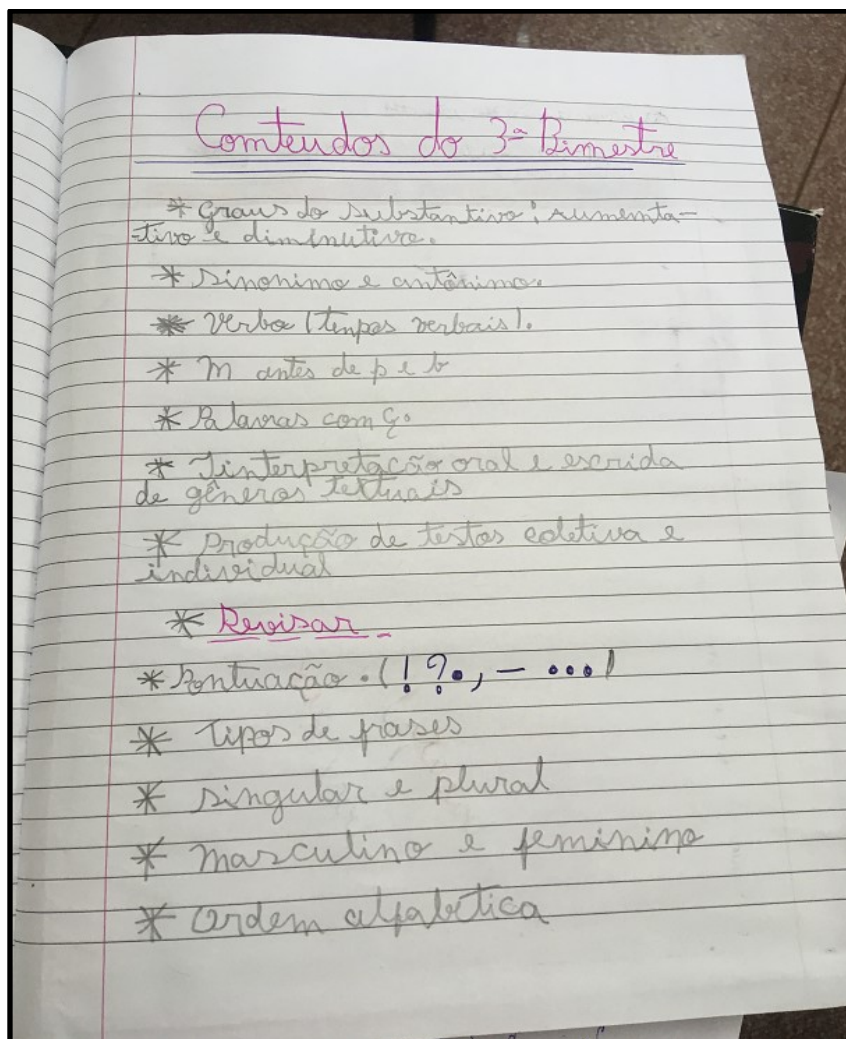 Comteudos do 3º Bimestre
* Graus do substantivo: aumenta-
-tivo e diminutivo.
* Sinonimo e antônimo.
* Verbo (tenpos verbais).
* M antes de p e b
* Palavras com ç.
* Iinterpretação oral e escrida
de gêneros textuais
* Produção de testos coletiva e
individual
* Revisar -
* Pontuação . (! ? . , - ...)
* Tipos de frases
* singular e plural
* masculino e feminino
* Ordem alfabética